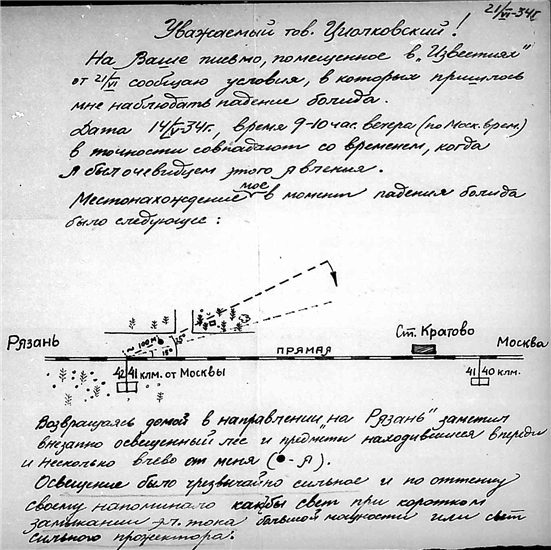 21/VI-34г
Уважаемый тов. Циолковский!
На Ваше письмо, помещенное в „Известиях"
от 21/VI сообщаю условия, в которых пришлось
мне наблюдать падение болида.
Дата 14/V-34г., время 9-10 час. вечера (по Моск. врем.)
в точности совпадают со временем, когда
я был очевидцем этого явления.
Местонахождение мое в момент падения болида
было следующее:
Рязань
~ 100 м
15°
Ст. Кратово
Москва
ПРЯМАЯ
42 41 клм. от Москвы
41 40 клм.
Возвращаясь домой в направлении „на Рязань" заметил
внезапно освещенный лес и предметы находившиеся впереди
и несколько влево от меня (●-Я).
Освещение было чрезвычайно сильное и по оттенку
своему напоминало как бы свет при коротком
замыкании эл. тока большой мощности или свет
сильного прожектора.